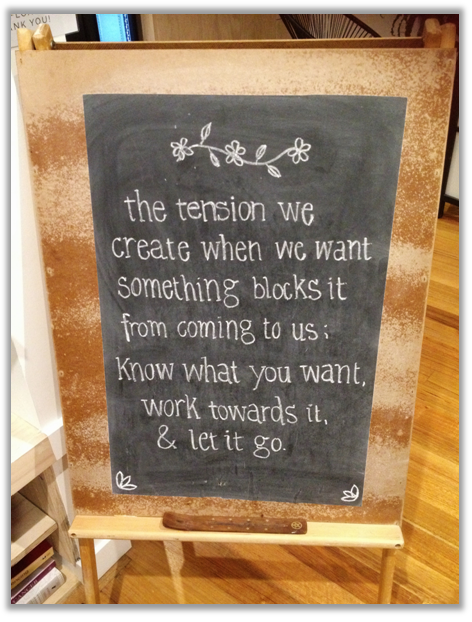 ANK YOU!
the tension we
create when we want
something blocks it
from coming to us;
know what you want,
work towards it,
& let it go.